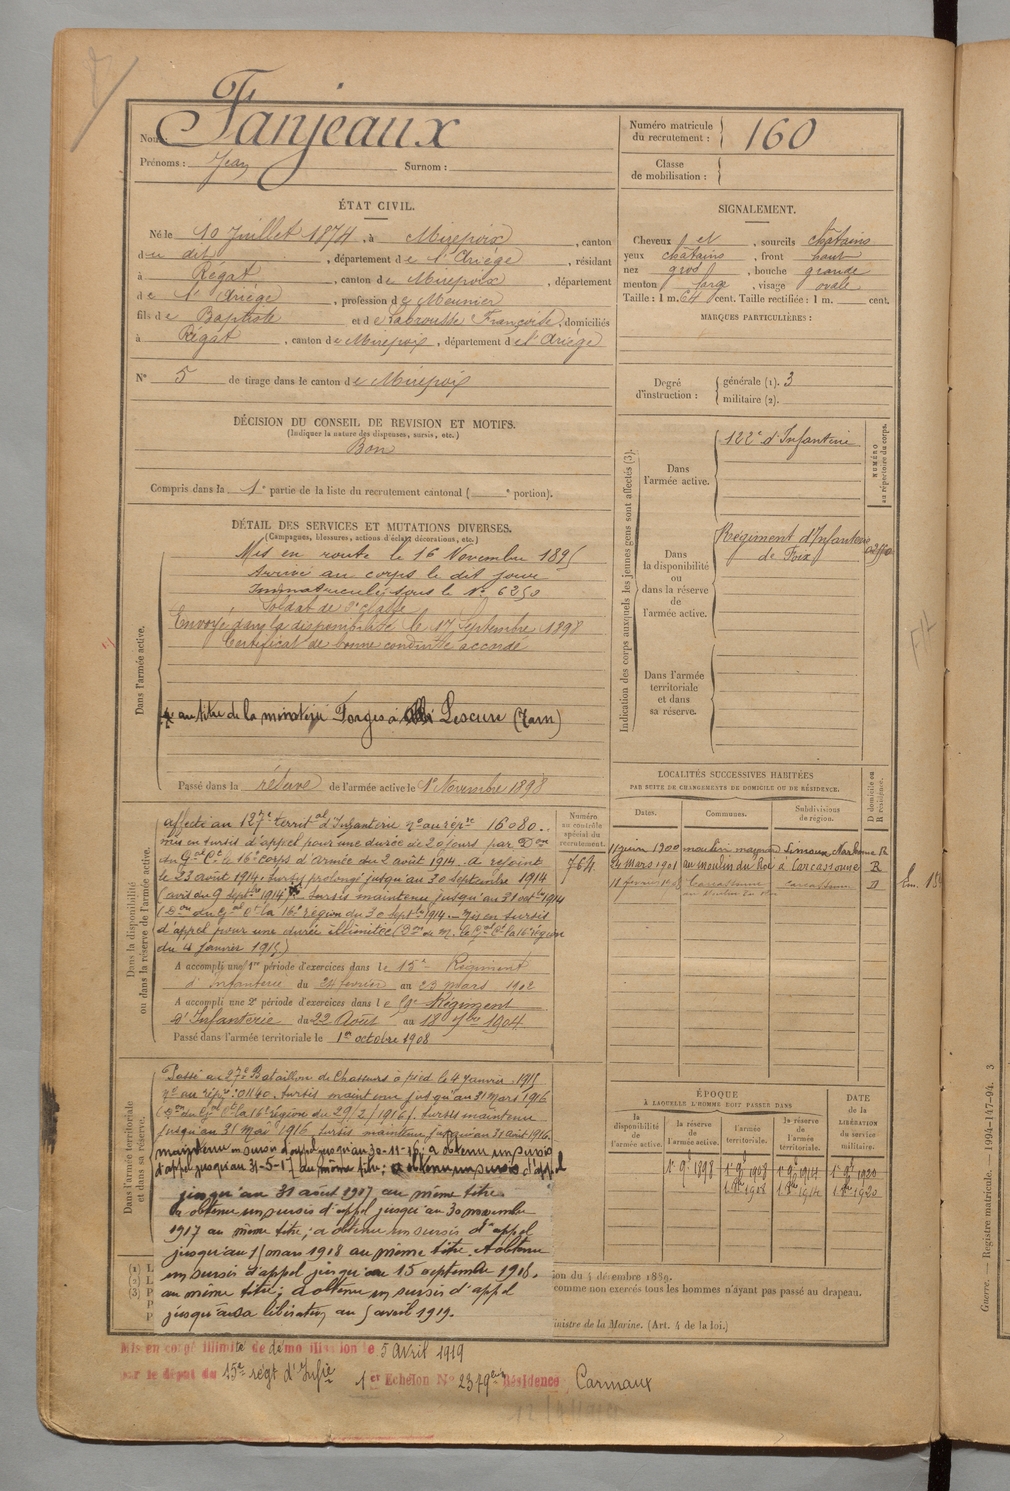 Nom : Fanjeaux
Prénoms : Jean Surnom :
Numéro matricule du recrutement : 160
Classe de mobilisation :
ÉTAT CIVIL.
Né le 10 Juillet 1874, à Mirepoix, canton
du dit, département de l'Ariège, résidant
à Régat, canton de Mirepoix, département
de l'Ariège, profession de Meunier
fils de Baptiste et de Labrousse Françoise, domiciliés
à Régat, canton de Mirepoix, département de l'Ariège
N° 5 de tirage dans le canton de Mirepoix
SIGNALEMENT.
Cheveux et, sourcils châtains
yeux châtains, front haut
nez gros, bouche grande
menton large, visage ovale
Taille : 1 m. 64 cent. Taille rectifiée : 1 m. cent.
MARQUES PARTICULIÈRES :
Degré d'instruction : générale (1). 3
militaire (2).
DÉCISION DU CONSEIL DE REVISION ET MOTIFS.
(Indiquer la nature des dispenses, sursis, etc.)
Bon
Compris dans la 1e partie de la liste du recrutement cantonal ( e portion).
DÉTAIL DES SERVICES ET MUTATIONS DIVERSES.
(Campagnes, blessures, actions d'éclat, décorations, etc.)
Dans l'armée active.
Mis en route le 16 Novembre 1895
Arrivé au corps le dit jour
Immatriculé sous le N° 6250
Soldat de 2e classe
Envoyé dans la disponibilité le 17 Septembre 1898
Certificat de bonne conduite accordé
au titre de la minoterie Forges à Lescure (Tarn)
Passé dans la réserve de l'armée active le 1er Novembre 1898
Indication des corps auxquels les jeunes gens sont affectés (3).
NUMÉRO au répertoire du corps.
Dans l'armée active.
122e d'Infanterie
Dans la disponibilité ou dans la réserve de l'armée active.
Régiment d'Infanterie
de Foix
Dans l'armée territoriale et dans sa réserve.
LOCALITÉS SUCCESSIVES HABITÉES
PAR SUITE DE CHANGEMENTS DE DOMICILE OU DE RÉSIDENCE.
Dates. Communes. Subdivisions de région. D domicile ou R résidence.
11 juin 1900 moulin Limoux Narbonne R
24 Mars 1901 au moulin du Roi à Carcassonne R
18 février Carcassonne Carcassonne D
Dans la disponibilité ou dans la réserve de l'armée active.
Numéro au contrôle spécial du recrutement.
764
affecté au 127e territal d'Infanterie no au répre 16080.
mis en sursis d'appel pour une durée de 20 jours par Don
du Gal Ct le 16e corps d'Armée du 2 août 1914. a rejoint
le 23 août 1914. Sursis prolongé jusqu'au 30 septembre 1914
(avis du 9 septbre 1914) Sursis maintenu jusqu'au 31 octbre 1914
(Don du Gal Ct la 16e région du 30 septbre 1914. Mis en sursis
d'appel pour une durée illimitée (Don de M. le Gal Ct la 16e région
du 4 Janvier 1915)
A accompli une 1re période d'exercices dans le 15e Régiment
d'Infanterie du 24 février au 23 mars 1902
A accompli une 2e période d'exercices dans le Régiment
d'Infanterie du 22 Août au 18 7bre 1904
Passé dans l'armée territoriale le 1er octobre 1908
Dans l'armée territoriale et dans sa réserve.
Passé au 27e Bataillon de Chasseurs à pied le 4 Janvier 1915
no au répre : 01140. Sursis maintenu jusqu'au 31 Mars 1916
(Don du Gal Ct la 16e région du 29/2/1916). Sursis maintenu
jusqu'au 31 Mai 1916. Sursis maintenu jusqu'au 31 août 1916.
maintenu en sursis d'appel jusqu'au 30-11-16; a obtenu un sursis
d'appel jusqu'au 31-5-17 au même titre; a obtenu un sursis d'appel
jusqu'au 31 août 1917 au même titre.
a obtenu un sursis d'appel jusqu'au 30 novembre
1917 au même titre; a obtenu un sursis d'appel
jusqu'au 15 mars 1918 au même titre. A obtenu
un sursis d'appel jusqu'au 15 septembre 1918.
au même titre; a obtenu un sursis d'appel
jusqu'à sa libération au 5 avril 1919.
ÉPOQUE
À LAQUELLE L'HOMME DOIT PASSER DANS
la disponibilité de l'armée active. la réserve de l'armée active. l'armée territoriale. la réserve de l'armée territoriale. DATE de la LIBÉRATION du service militaire.
1er 9bre 1898 1er 9bre 1908 1er 9bre 1914 1er 9bre 1920
1er 8bre 1908 1er 8bre 1914 1er 8bre 1920
ion du 4 décembre 1889.
comme non exercés tous les hommes n'ayant pas passé au drapeau.
inistre de la Marine. (Art. 4 de la loi.)
Mis en congé illimité de démobilisation le 5 avril 1919
par le dépôt du 15e régt d'Infie 1er Echelon N° 2379 Résidence Carmaux
Guerre. — Registre matricule. — 1994-147-94. 3